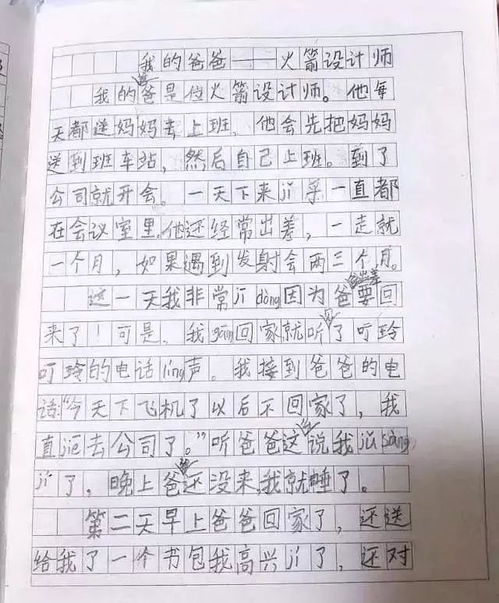 我的爸爸——火箭设计师
我的爸爸是位火箭设计师。他每
天都送妈妈去上班，他会先把妈妈
送到班车站，然后自己上班。到了
公司就开会。一天下来jī乎一直都
在会议室里。他还经常出差，一走就
一个月，如果遇到发射会两三个月。
这一天我非常jī dòng因为爸爸要回
来了！可是，我gāng回家就听了叮玲
叮玲的电话líng声。我接到爸爸的电
话:“今天下飞机了以后不回家了，我
直jiē去公司了。”听爸爸这说我jǔ sàng
jí了，晚上爸爸还没来我就睡了。
第二天早上爸爸回家了，还送
给我了一个书包我高兴jí了，还对